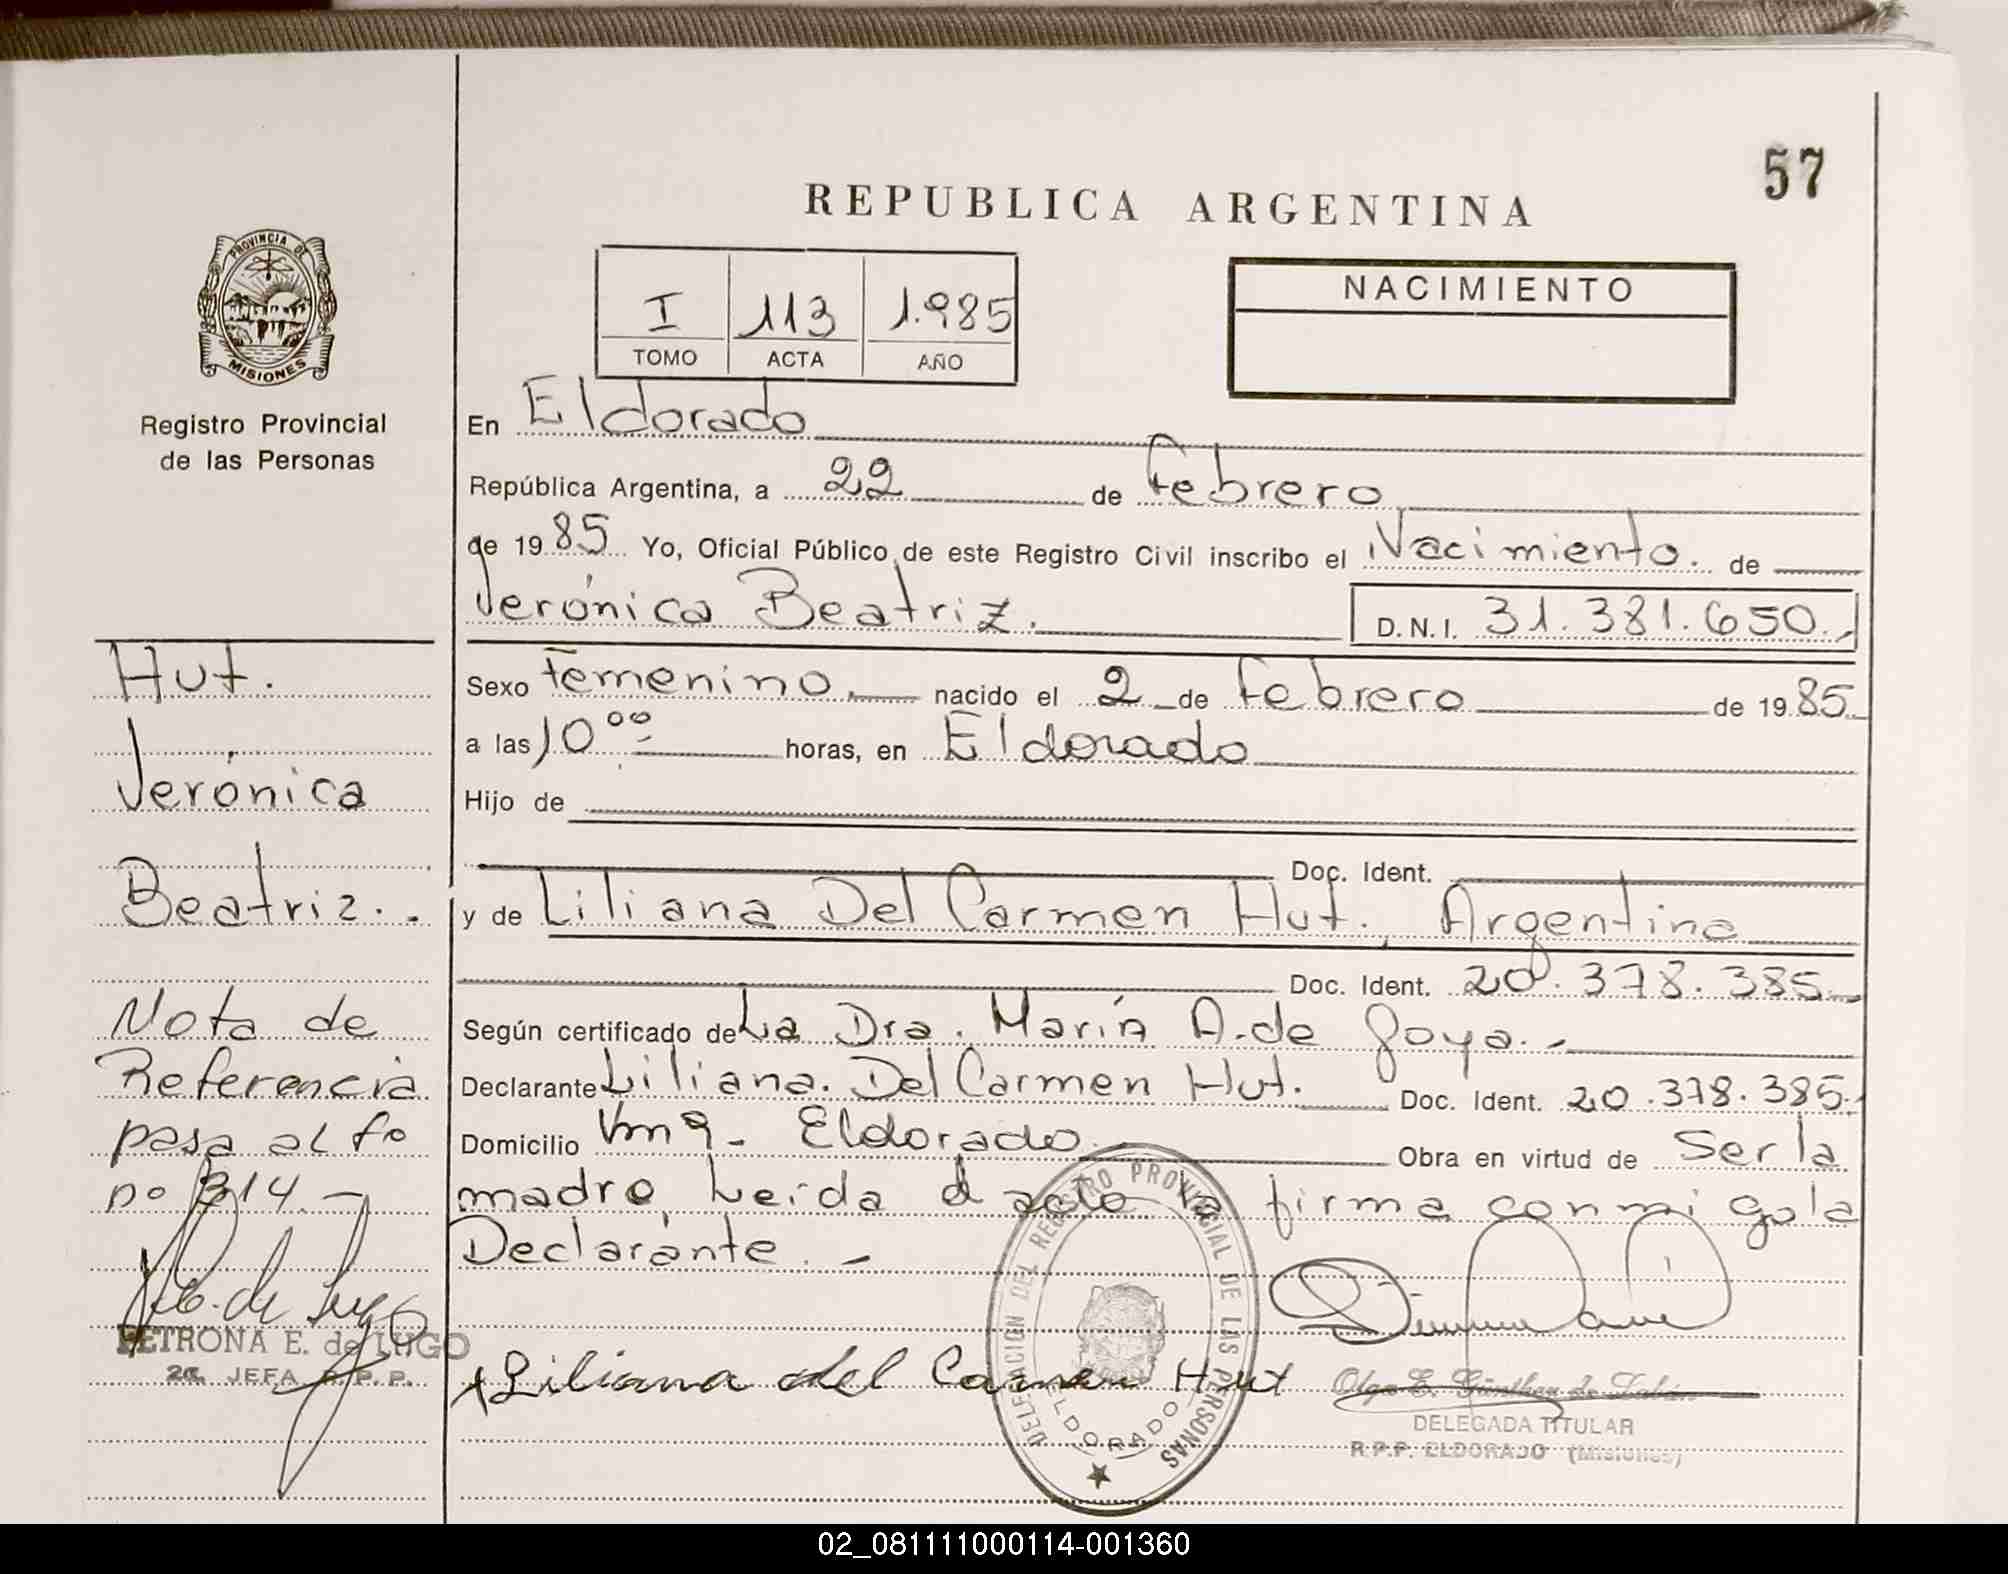 57
REPUBLICA ARGENTINA
PROVINCIA DE
MISIONES
Registro Provincial
de las Personas
I 113 1.985
TOMO ACTA AÑO
NACIMIENTO
En Eldorado
República Argentina, a 22 de Febrero
de 1985 Yo, Oficial Público de este Registro Civil inscribo el Nacimiento. de
Verónica Beatriz. D.N.I. 31.381.650.
Sexo Femenino nacido el 2 de Febrero de 1985
a las 10⁰⁰ horas, en Eldorado
Hijo de
Doc. Ident.
y de Liliana Del Carmen Hut. Argentina
Doc. Ident. 20.378.385
Según certificado de La Dra. María A. de Goya.-
Declarante Liliana. Del Carmen Hut. Doc. Ident. 20.378.385.
Domicilio Km 9- Eldorado Obra en virtud de Ser la
madre, Leida el acto la firma conmigo la
Declarante. -
Liliana del Carmen Hut
DELEGADA TITULAR
R.P.P. ELDORADO (Misiones)
DELEGACION DEL REGISTRO PROVINCIAL DE LAS PERSONAS
ELDORADO
Hut.
Verónica
Beatriz..
Nota de
Referencia
pasa al fo
no 314.-
PETRONA E. de LUGO
2a. JEFA R.P.P.
02_081111000114-001360